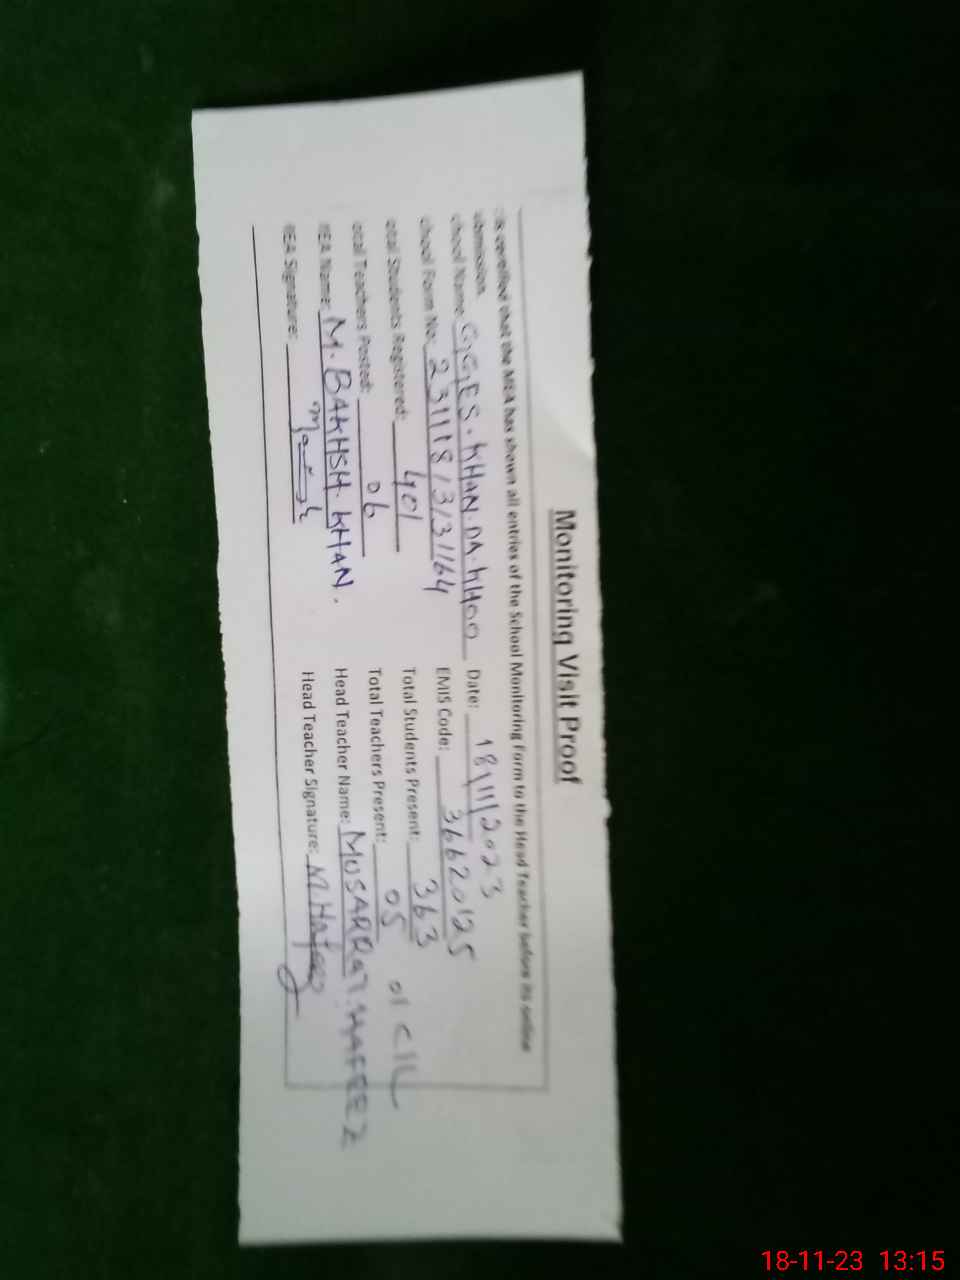 Monitoring Visit Proof
is certified that the MEA has shown all entries of the School Monitoring Form to the Head Teacher before its online
ubmission.
chool Name: GGES. KHAN. DA. KHOO Date: 18/11/2023
chool Form No: 231118/3/31164 EMIS Code: 36620125
otal Students Registered: 401 Total Students Present: 363
otal Teachers Posted: 06 Total Teachers Present: 05 01 C/L
MEA Name: M. BAKHSH. KHAN. Head Teacher Name: MUSARRAT. HAFEEZ
MEA Signature: Head Teacher Signature: M. Hafeez
18-11-23 13:15